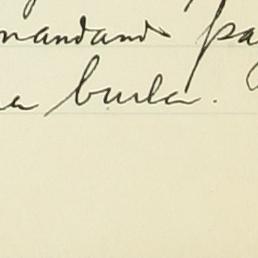 mandando pa
a burla.